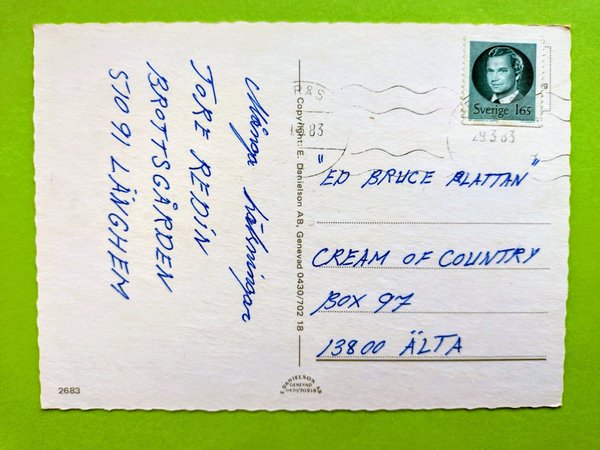 Många hälsningar
TORE REDIN
BROTTSGÅRDEN
51091 LÄNGHEM
2683
Copyright: E. Danielson AB, Genevad 0430/702 18
Sverige 165
83
29.3.83
"ED BRUCE PLATTAN"
CREAM OF COUNTRY
BOX 97
13800 ÄLTA
E. DANIELSON AB
GENEVAD
0430/70218